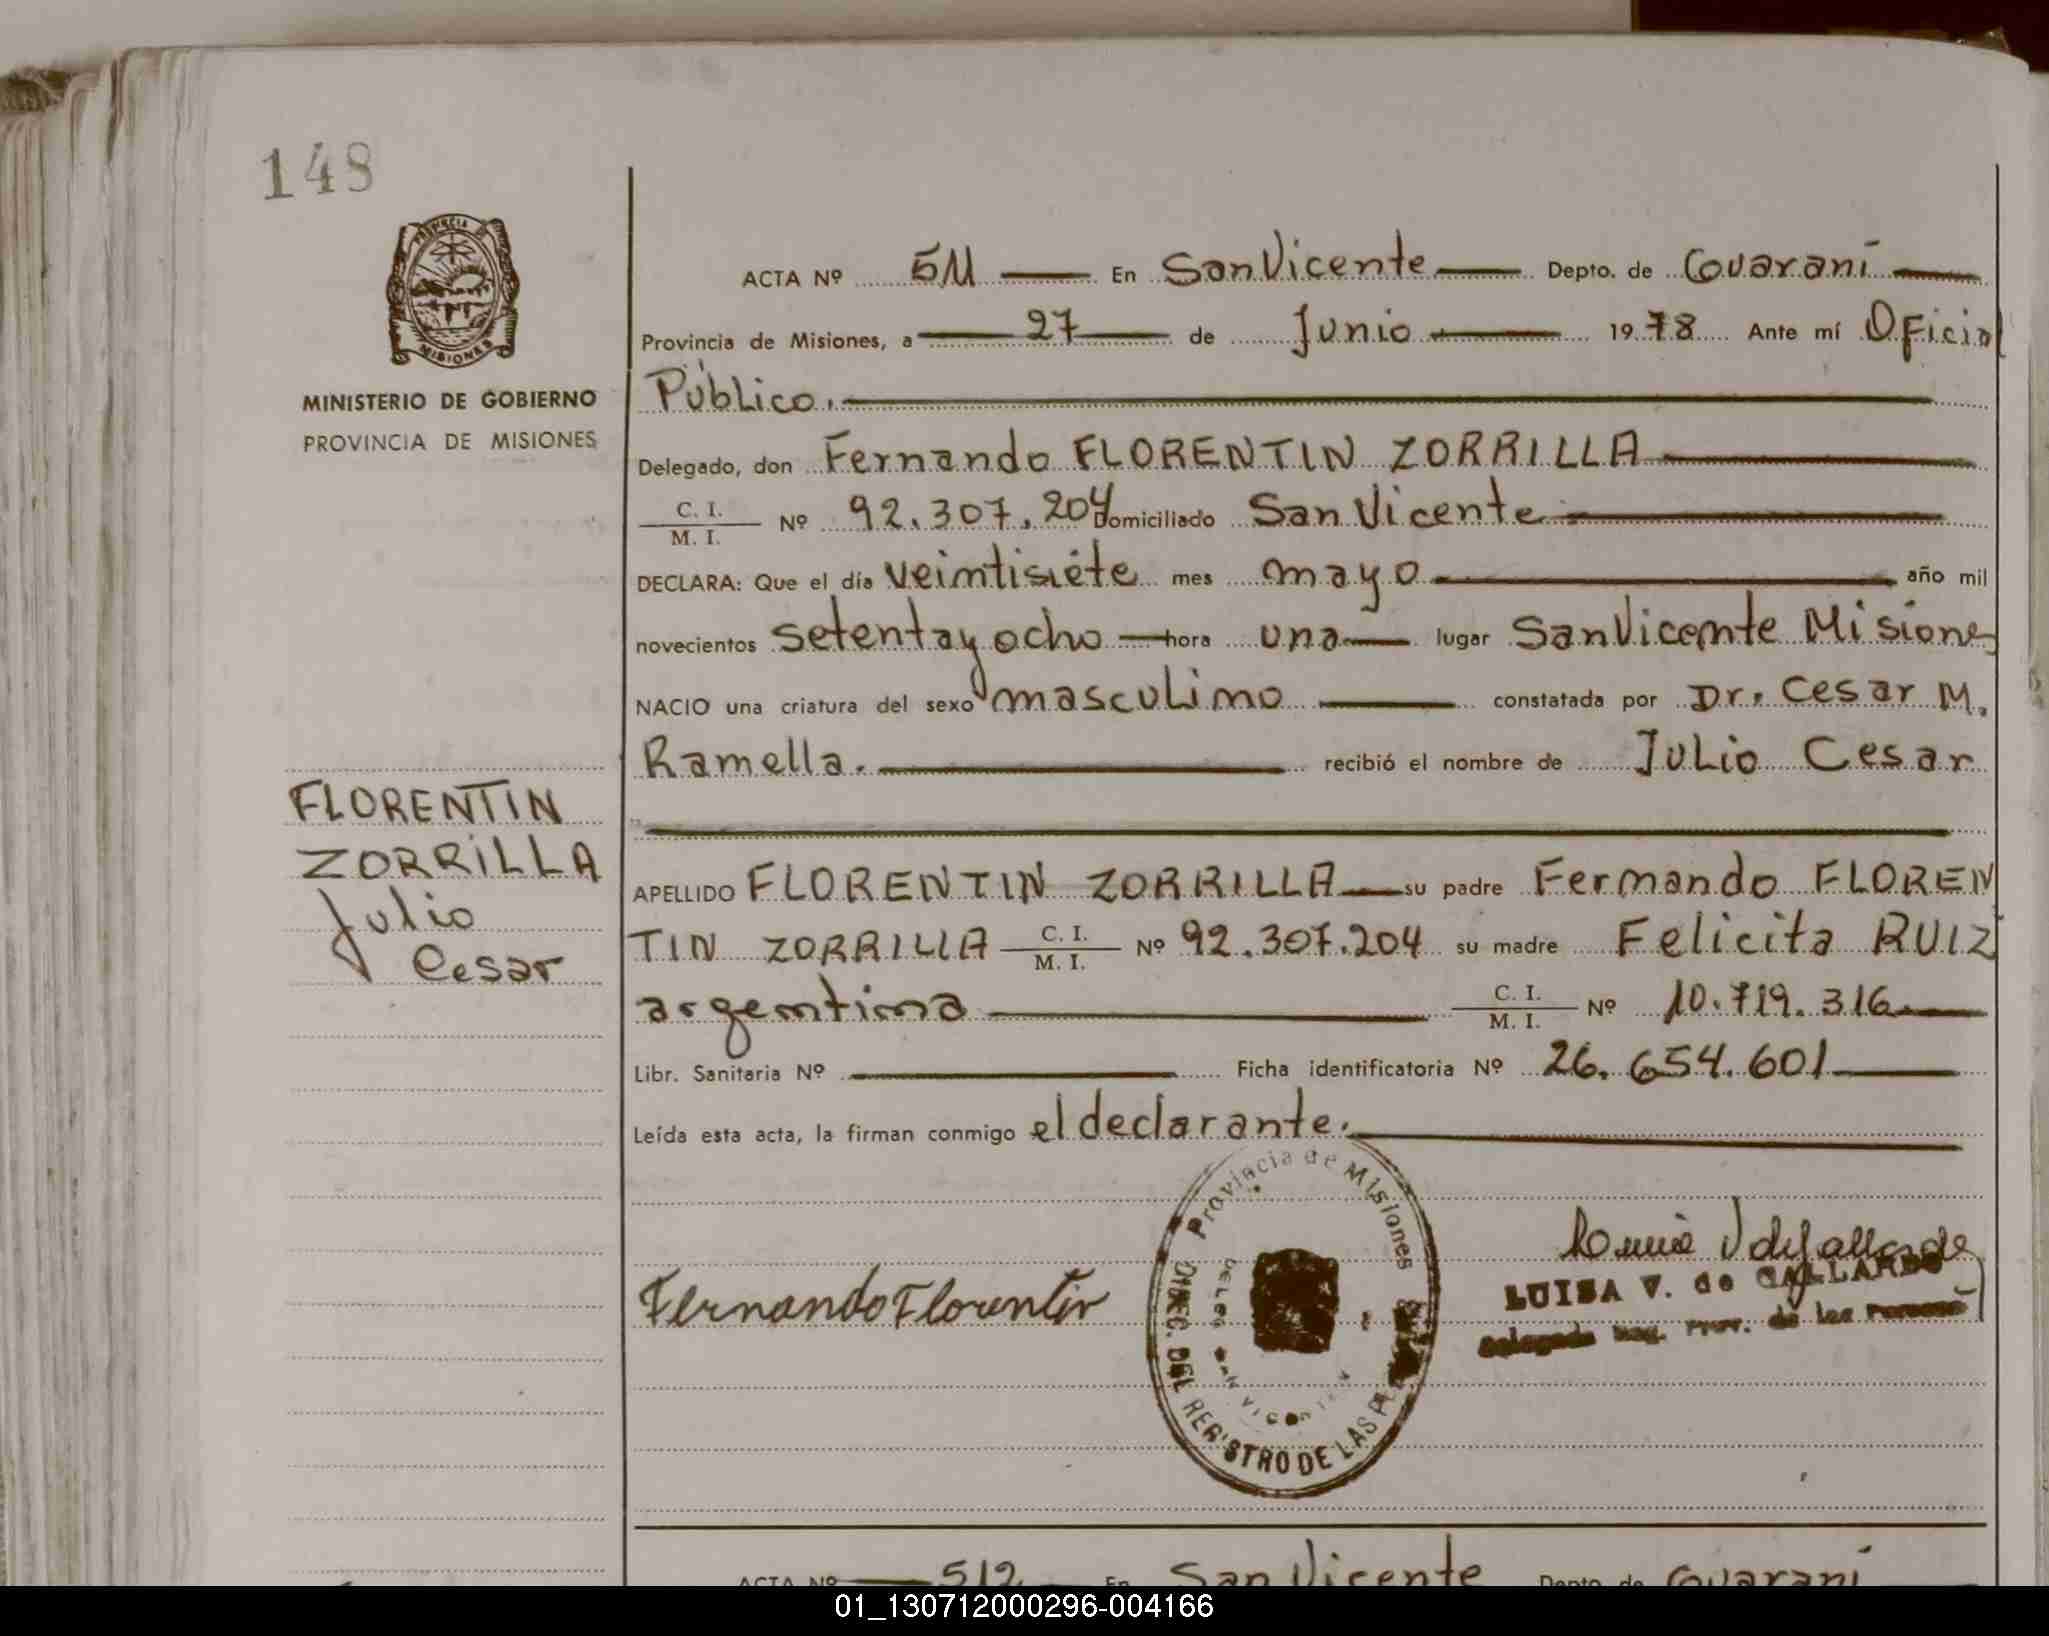 148
PROVINCIA DE
MISIONES
MINISTERIO DE GOBIERNO
PROVINCIA DE MISIONES
FLORENTIN
ZORRILLA
Julio
Cesar
ACTA Nº 511 En San Vicente Depto. de Guaraní
Provincia de Misiones, a 27 de Junio 1978 Ante mí Oficial
Público.
Delegado, don Fernando FLORENTIN ZORRILLA
C. I.
M. I. Nº 92.307.204 Domiciliado San Vicente
DECLARA: Que el día veintisiete mes mayo año mil
novecientos setenta y ocho hora una lugar San Vicente Misiones
NACIO una criatura del sexo masculino constatada por Dr. Cesar M.
Ramella. recibió el nombre de Julio Cesar
APELLIDO FLORENTIN ZORRILLA su padre Fernando FLOREN
TIN ZORRILLA C. I. M. I. Nº 92.307.204 su madre Felicita RUIZ
argentina C. I. M. I. Nº 10.719.316
Libr. Sanitaria Nº Ficha identificatoria Nº 26.654.601
Leída esta acta, la firman conmigo el declarante.
Provincia de Misiones
DIREC. DEL REGISTRO DE LAS
DELEG. SAN VICENTE
Fernando Florentin
LUISA V. de GALLARDO
Delegada Reg. Prov. de las Personas
ACTA Nº 512 En San Vicente Depto. de Guaraní
01_130712000296-004166